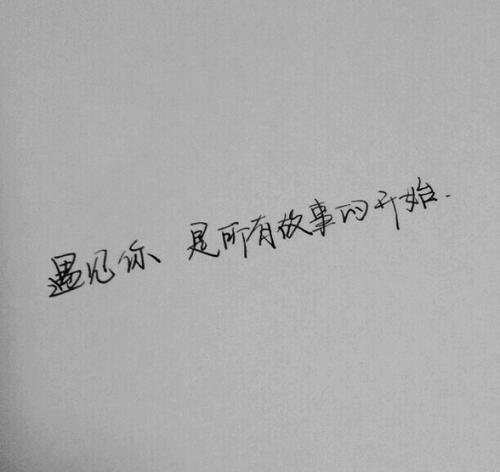 遇见你、是所有故事的开始.